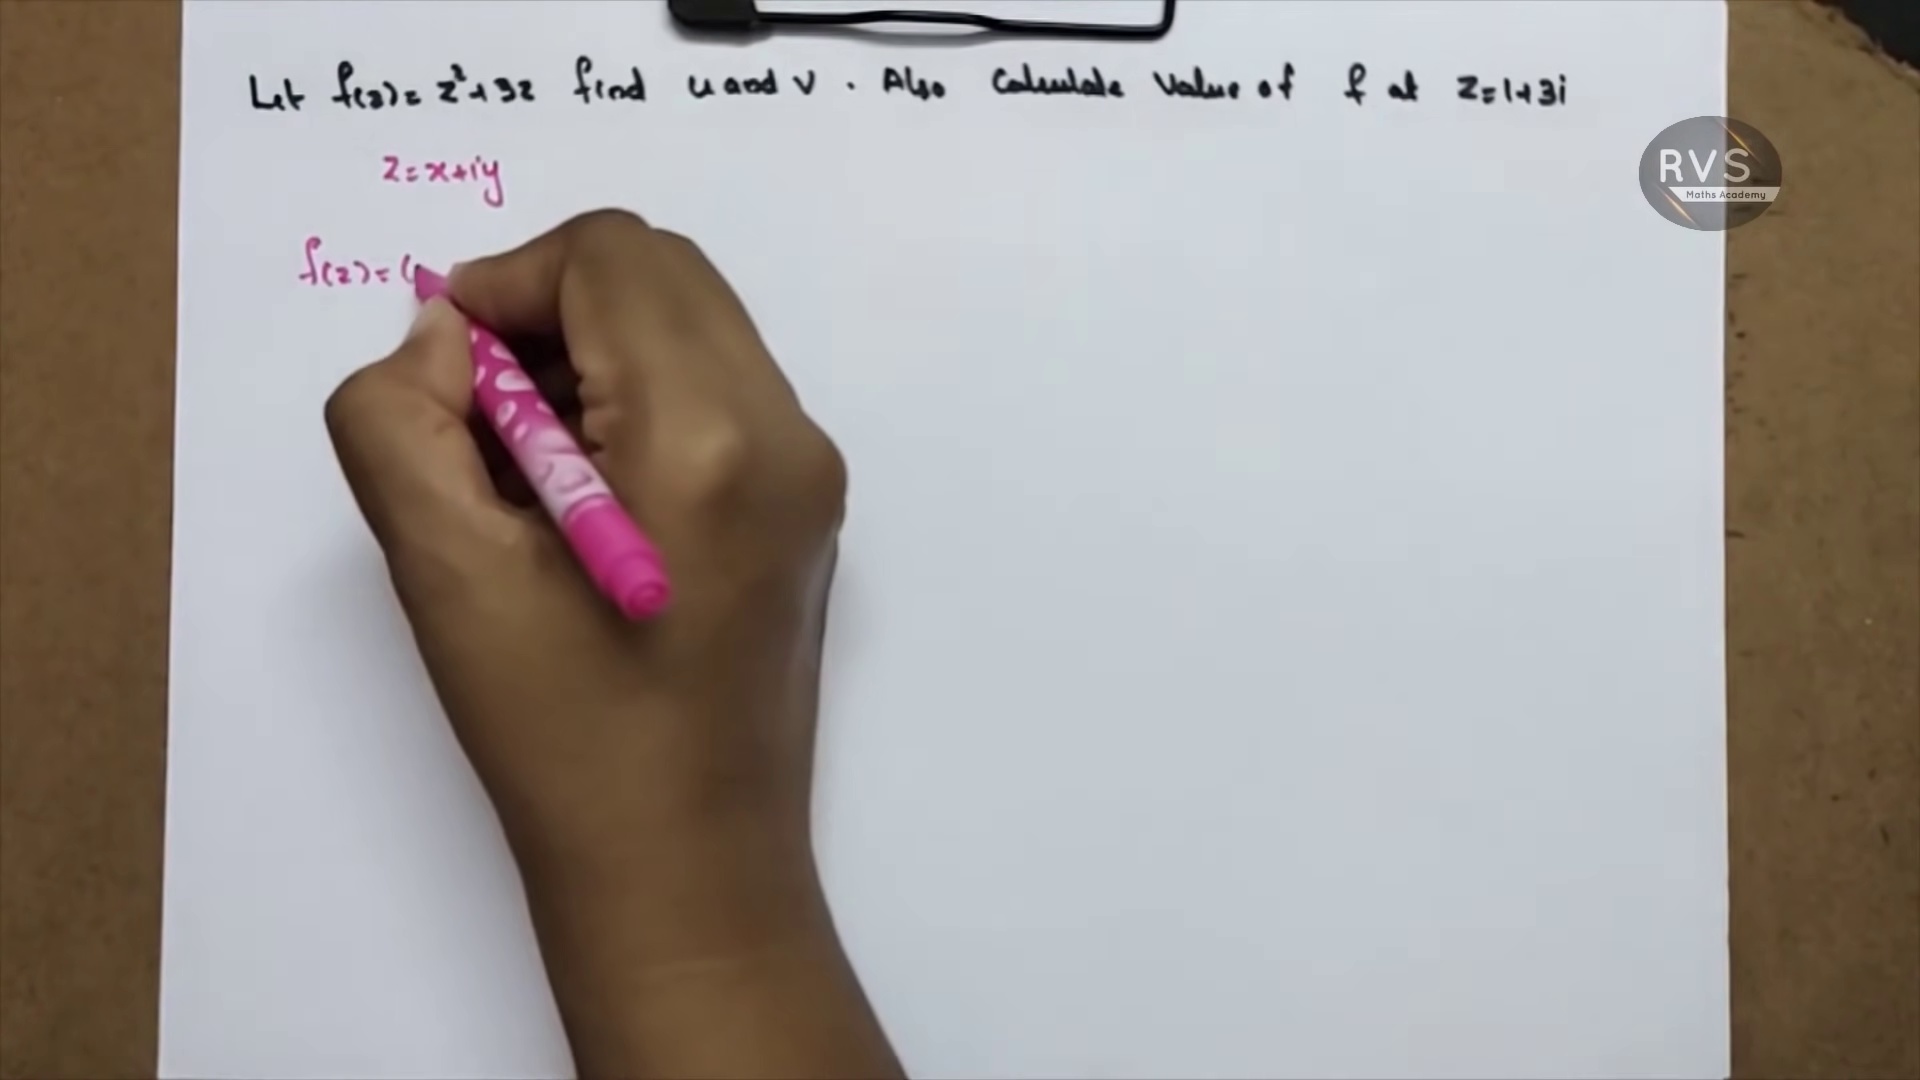 Let f(z) = z²+3z find u and v. Also Calculate Value of f at z=1+3i
RVS
Maths Academy
z=x+iy
f(z)=(